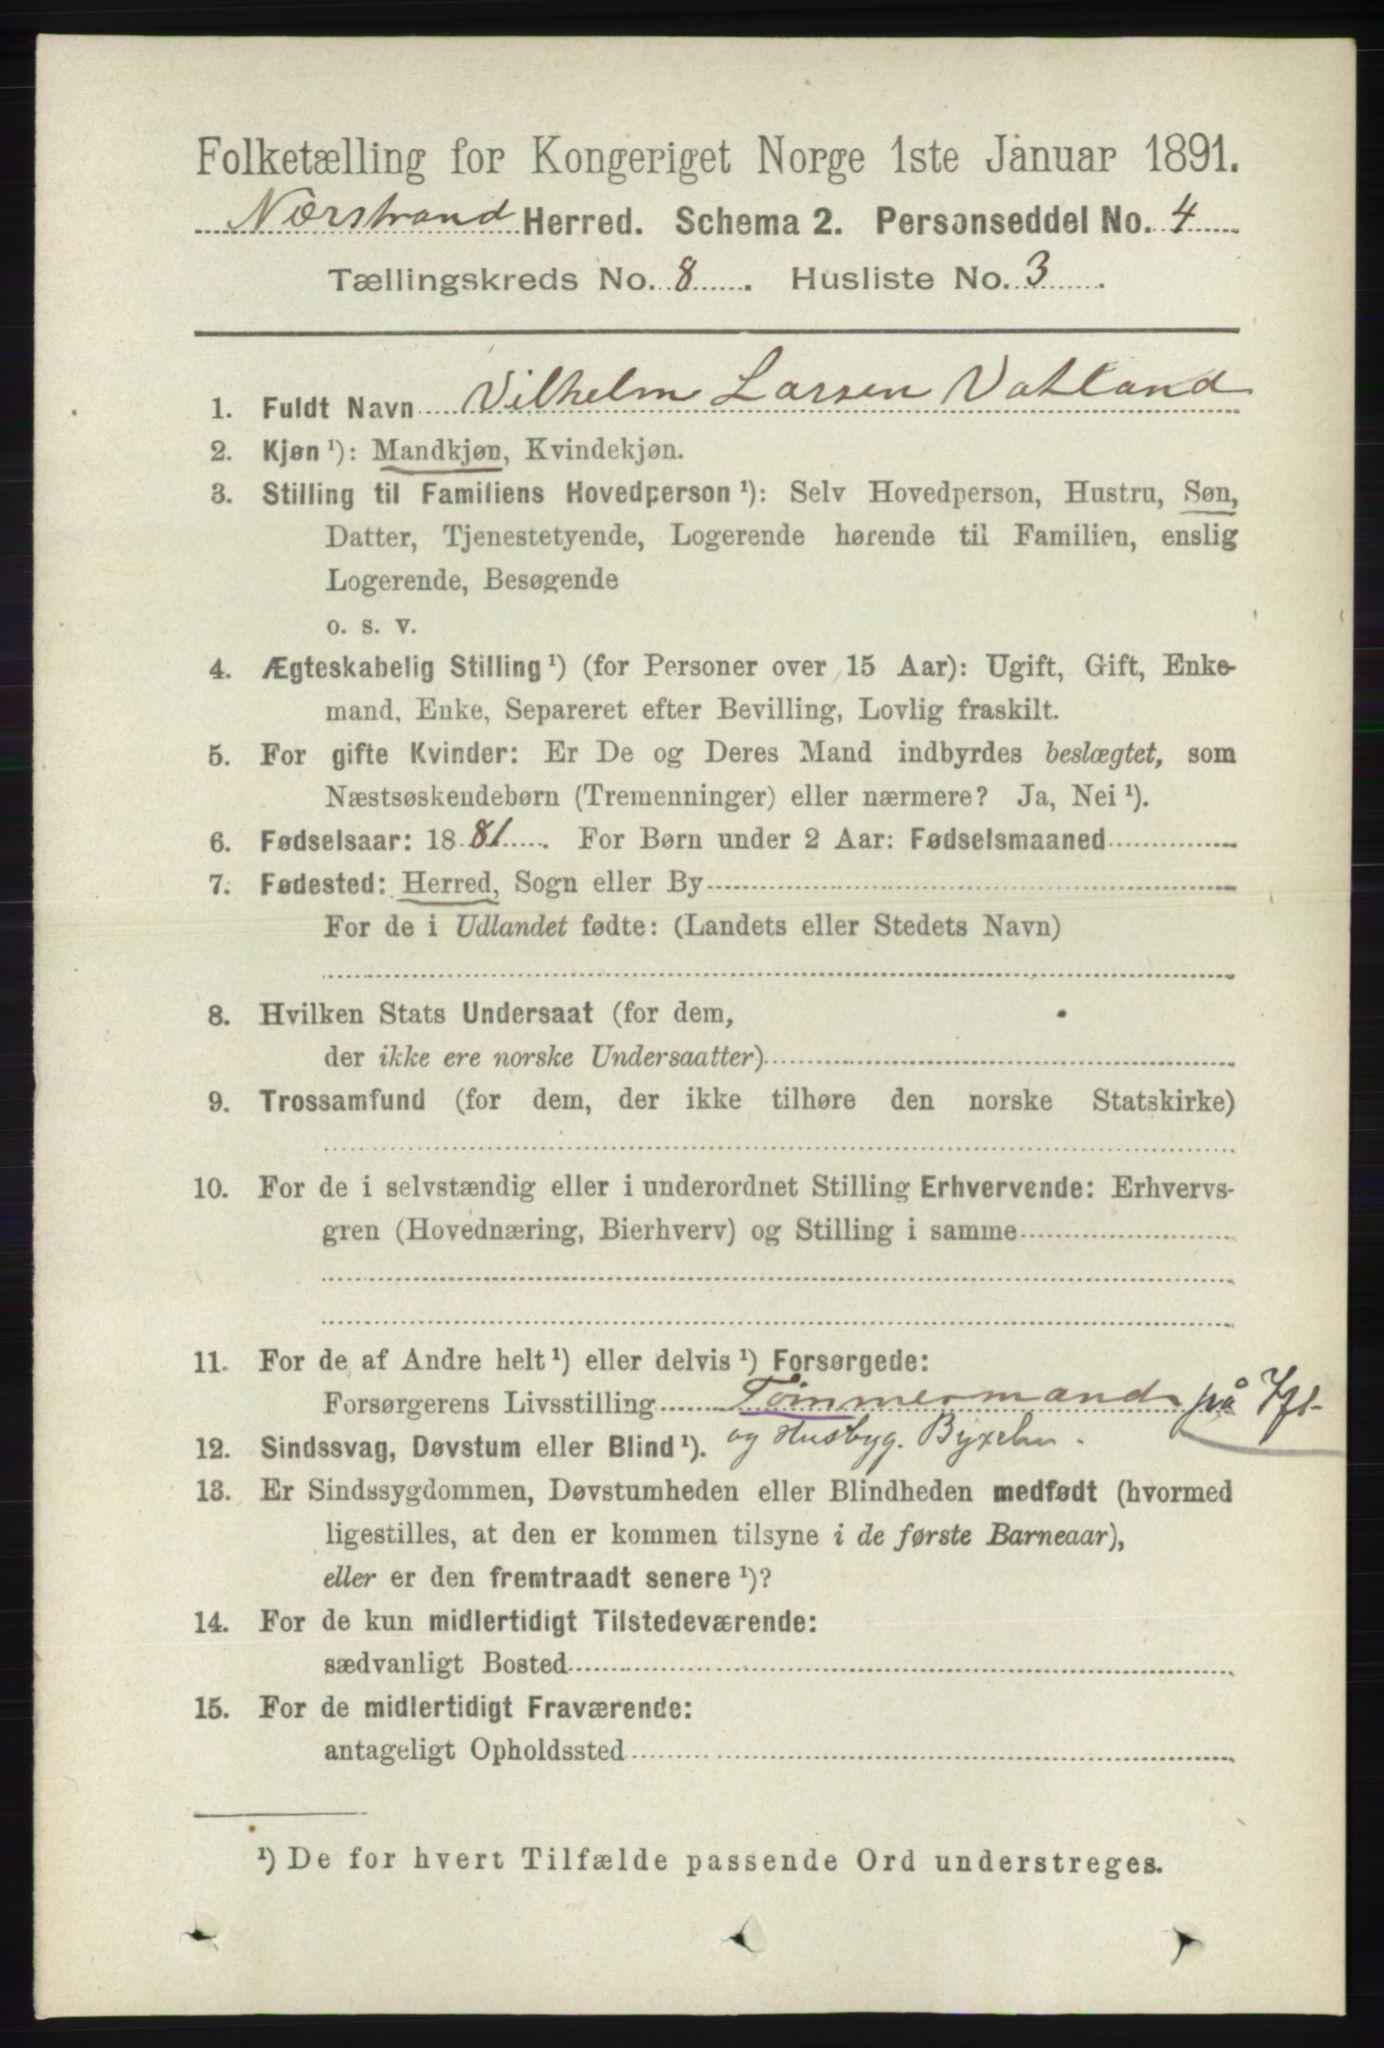 Folketælling for Kongeriget Norge 1ste Januar 1891.
Nærstrand Herred. Schema 2. Personseddel No. 4
Tællingskreds No. 8. Husliste No. 3.
1. Fuldt Navn Vilhelm Larsen Vatland
2. Kjøn ¹): Mandkjøn, Kvindekjøn.
3. Stilling til Familiens Hovedperson ¹): Selv Hovedperson, Hustru, Søn,
Datter, Tjenestetyende, Logerende hørende til Familien, enslig
Logerende, Besøgende
o. s. v.
4. Ægteskabelig Stilling ¹) (for Personer over 15 Aar): Ugift, Gift, Enke-
mand, Enke, Separeret efter Bevilling, Lovlig fraskilt.
5. For gifte Kvinder: Er De og Deres Mand indbyrdes beslægtet, som
Næstsøskendebørn (Tremenninger) eller nærmere? Ja, Nei ¹).
6. Fødselsaar: 1881. For Børn under 2 Aar: Fødselsmaaned
7. Fødested: Herred, Sogn eller By
For de i Udlandet fødte: (Landets eller Stedets Navn)
8. Hvilken Stats Undersaat (for dem,
der ikke ere norske Undersaatter)
9. Trossamfund (for dem, der ikke tilhøre den norske Statskirke)
10. For de i selvstændig eller i underordnet Stilling Erhvervende: Erhvervs-
gren (Hovednæring, Bierhverv) og Stilling i samme
11. For de af Andre helt ¹) eller delvis ¹) Forsørgede:
Forsørgerens Livsstilling Tømmermand på
og Husbyg.
12. Sindssvag, Døvstum eller Blind ¹).
13. Er Sindssygdommen, Døvstumheden eller Blindheden medfødt (hvormed
ligestilles, at den er kommen tilsyne i de første Barneaar),
eller er den fremtraadt senere ¹)?
14. For de kun midlertidigt Tilstedeværende:
sædvanligt Bosted
15. For de midlertidigt Fraværende:
antageligt Opholdssted
¹) De for hvert Tilfælde passende Ord understreges.